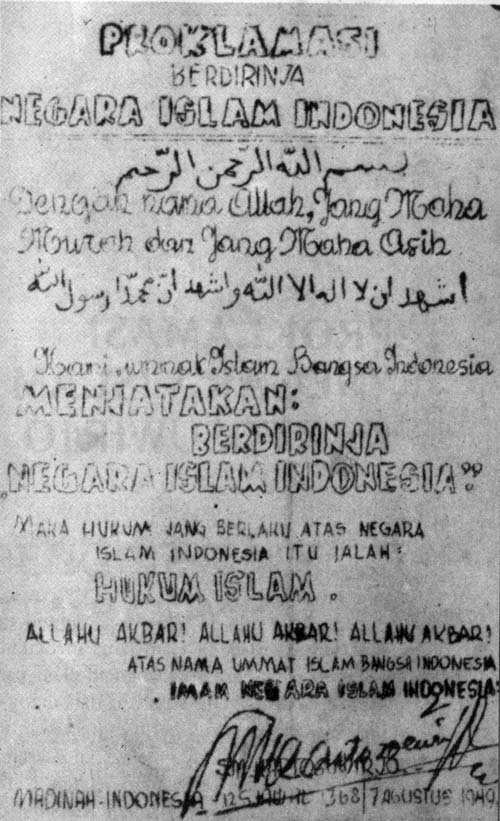 PROKLAMASI
BERDIRINJA
NEGARA ISLAM INDONESIA
بسم الله الرّحمن الرّحيم
Dengan nama Allah, Jang Maha
Murah dan Jang Maha Asih
اشهد ان لا اله الا الله واشهد انّ محمّدا رسول الله
Kami, ummat Islam Bangsa Indonesia
MENJATAKAN:
BERDIRINJA
„NEGARA ISLAM INDONESIA"
MAKA HUKUM JANG BERLAKU ATAS NEGARA
ISLAM INDONESIA ITU JALAH:
HUKUM ISLAM.
ALLAHU AKBAR! ALLAHU AKBAR! ALLAHU AKBAR!
ATAS NAMA UMMAT ISLAM BANGSA INDONESIA
IMAM NEGARA ISLAM INDONESIA:
MADINAH-INDONESIA 12 SJAWAL 1368/7 AGUSTUS 1949